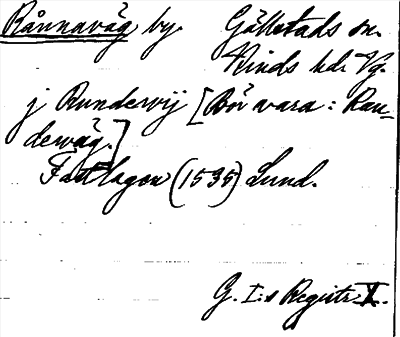 Rånnaväg by. Gällstads sn.
Kinds hd. Vg.
j Rundevij [Bör vara: Ran=
deväg.]
Fastlagen (1535) Lund.
G. I:s Registr. X.